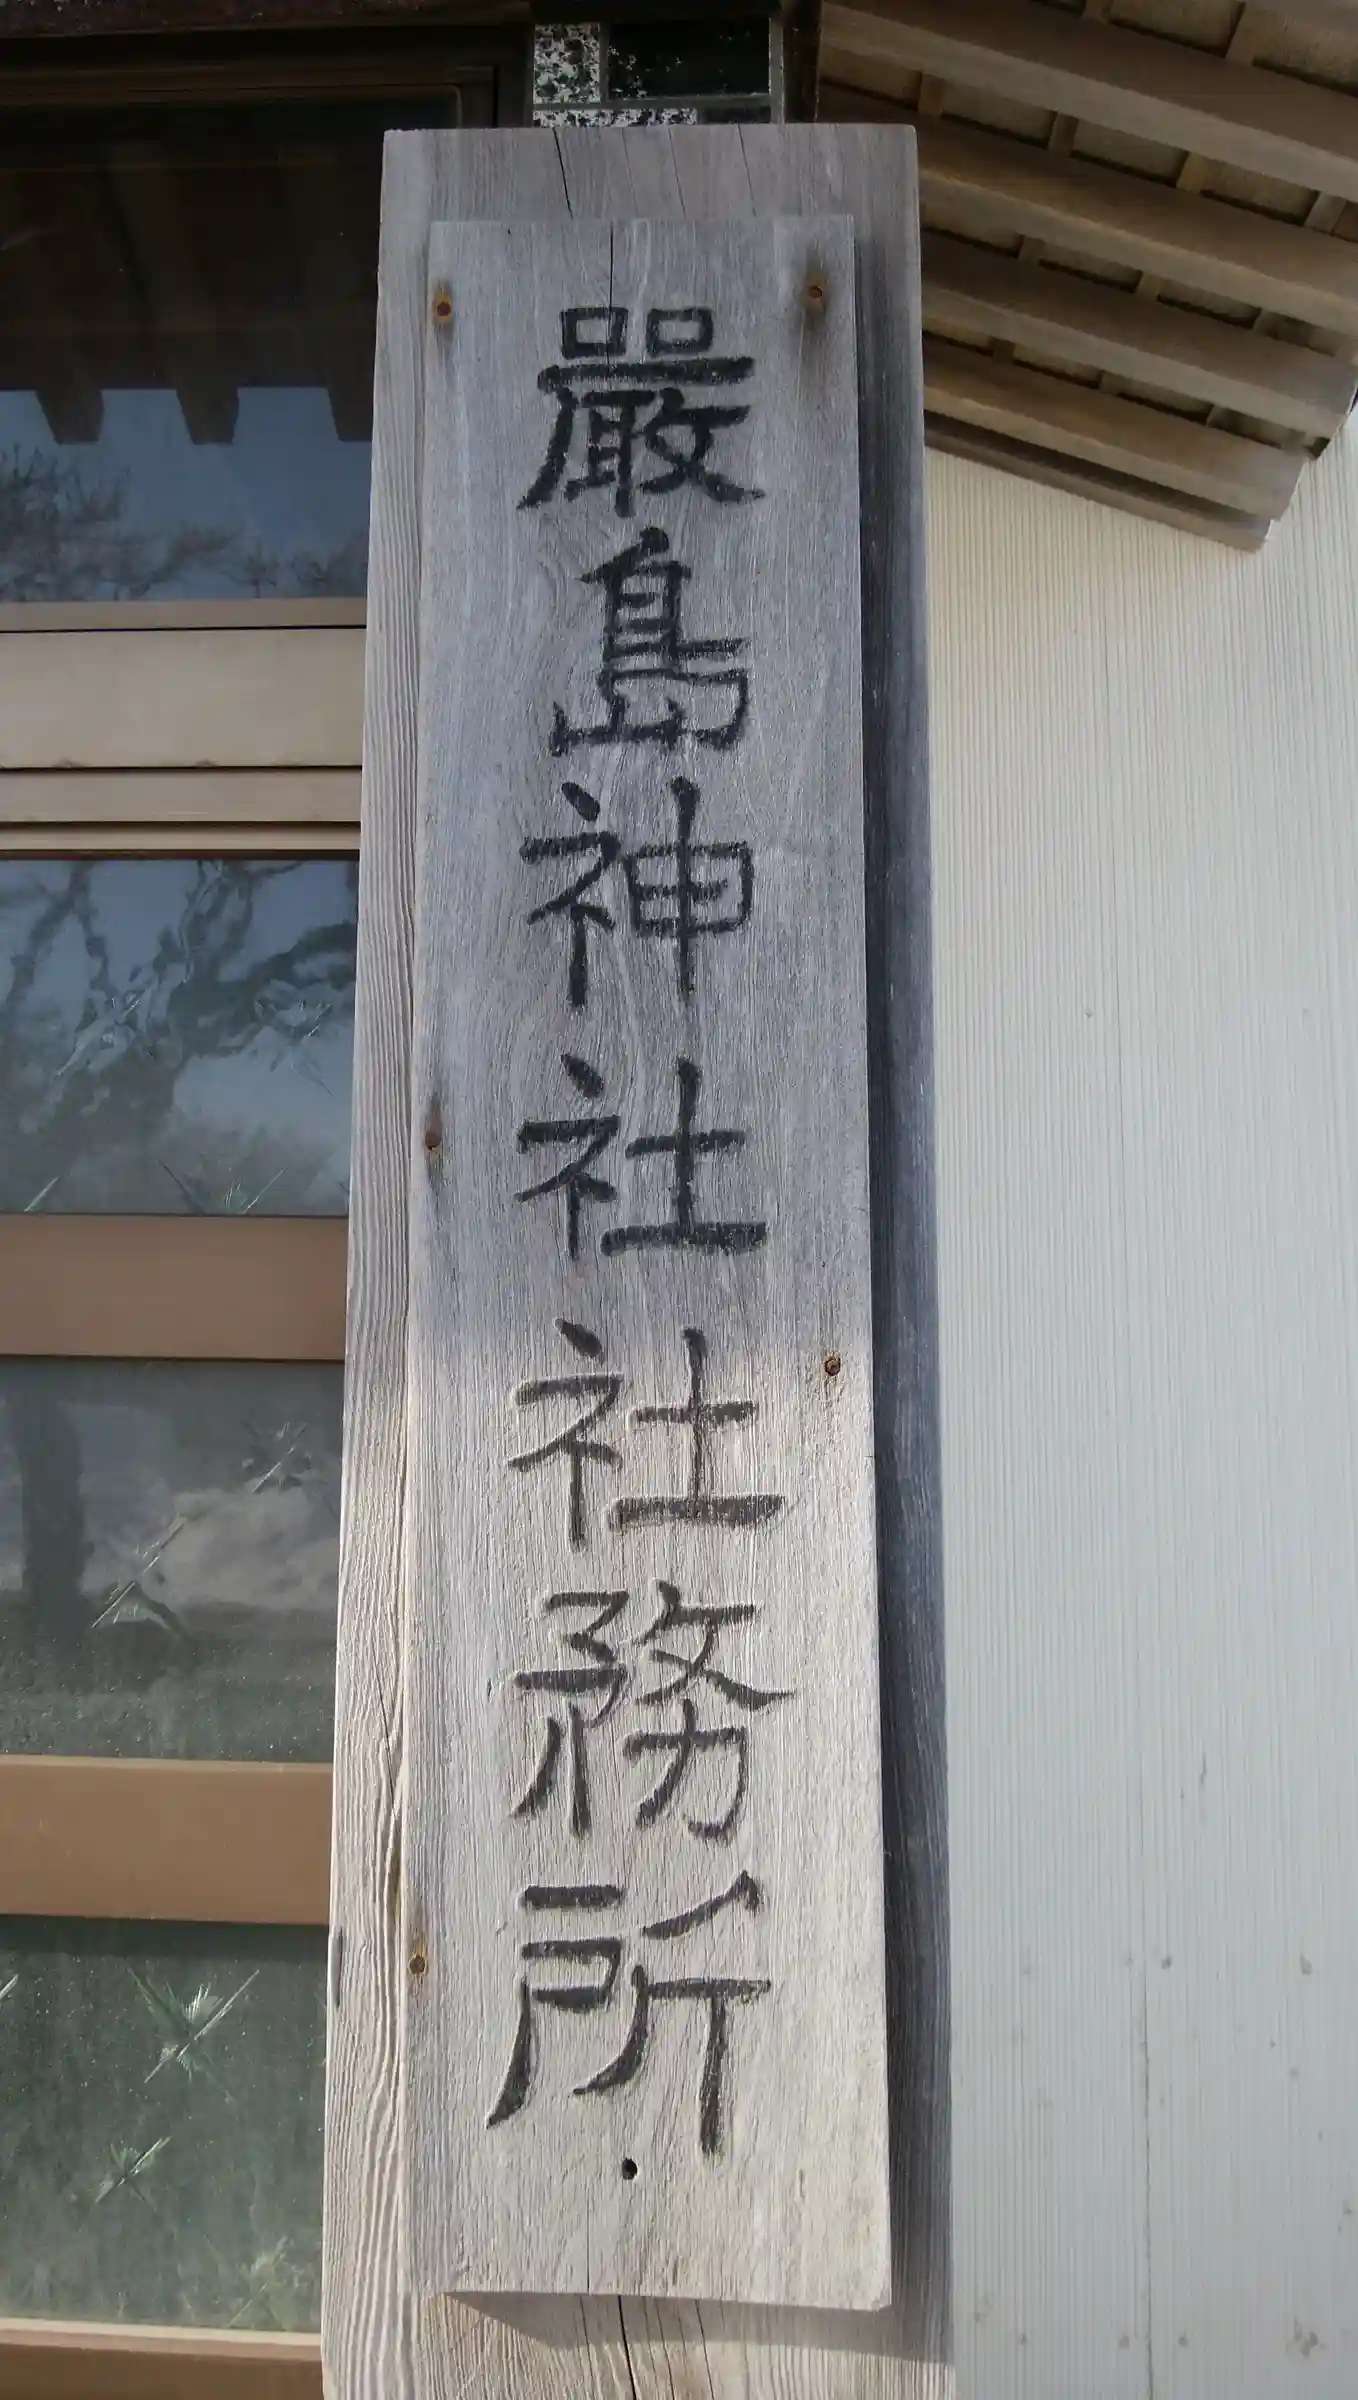 嚴島神社社務所